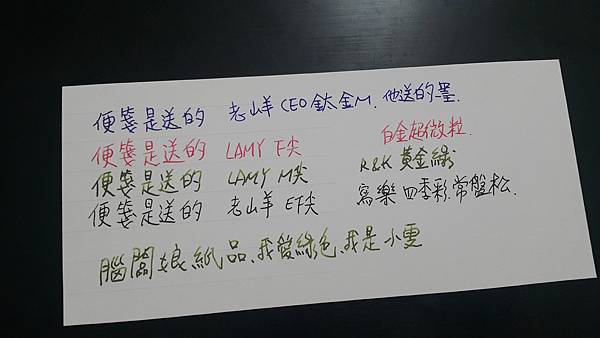 便箋是送的 老山羊 CEO 鈦金M. 他送的墨.
便箋是送的 LAMY F尖 白金超微粒.
便箋是送的 LAMY M尖 R&K 黃金綠
便箋是送的 老山羊 EF尖 寫樂 四季彩.常盤松.
腦闆娘紙品、我愛綠色、我是小雯